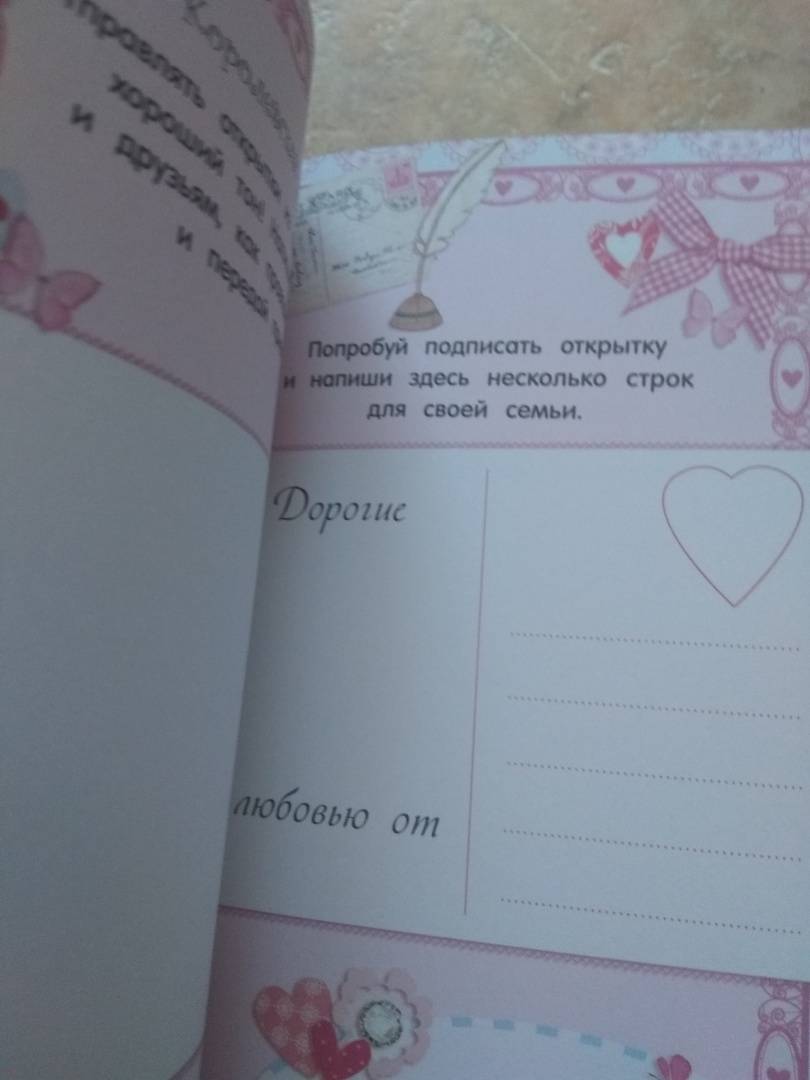 отправлять открытки
хороший тон!
и друзьям, как
и передай
Попробуй подписать открытку
и напиши здесь несколько строк
для своей семьи.
Дорогие
любовью от